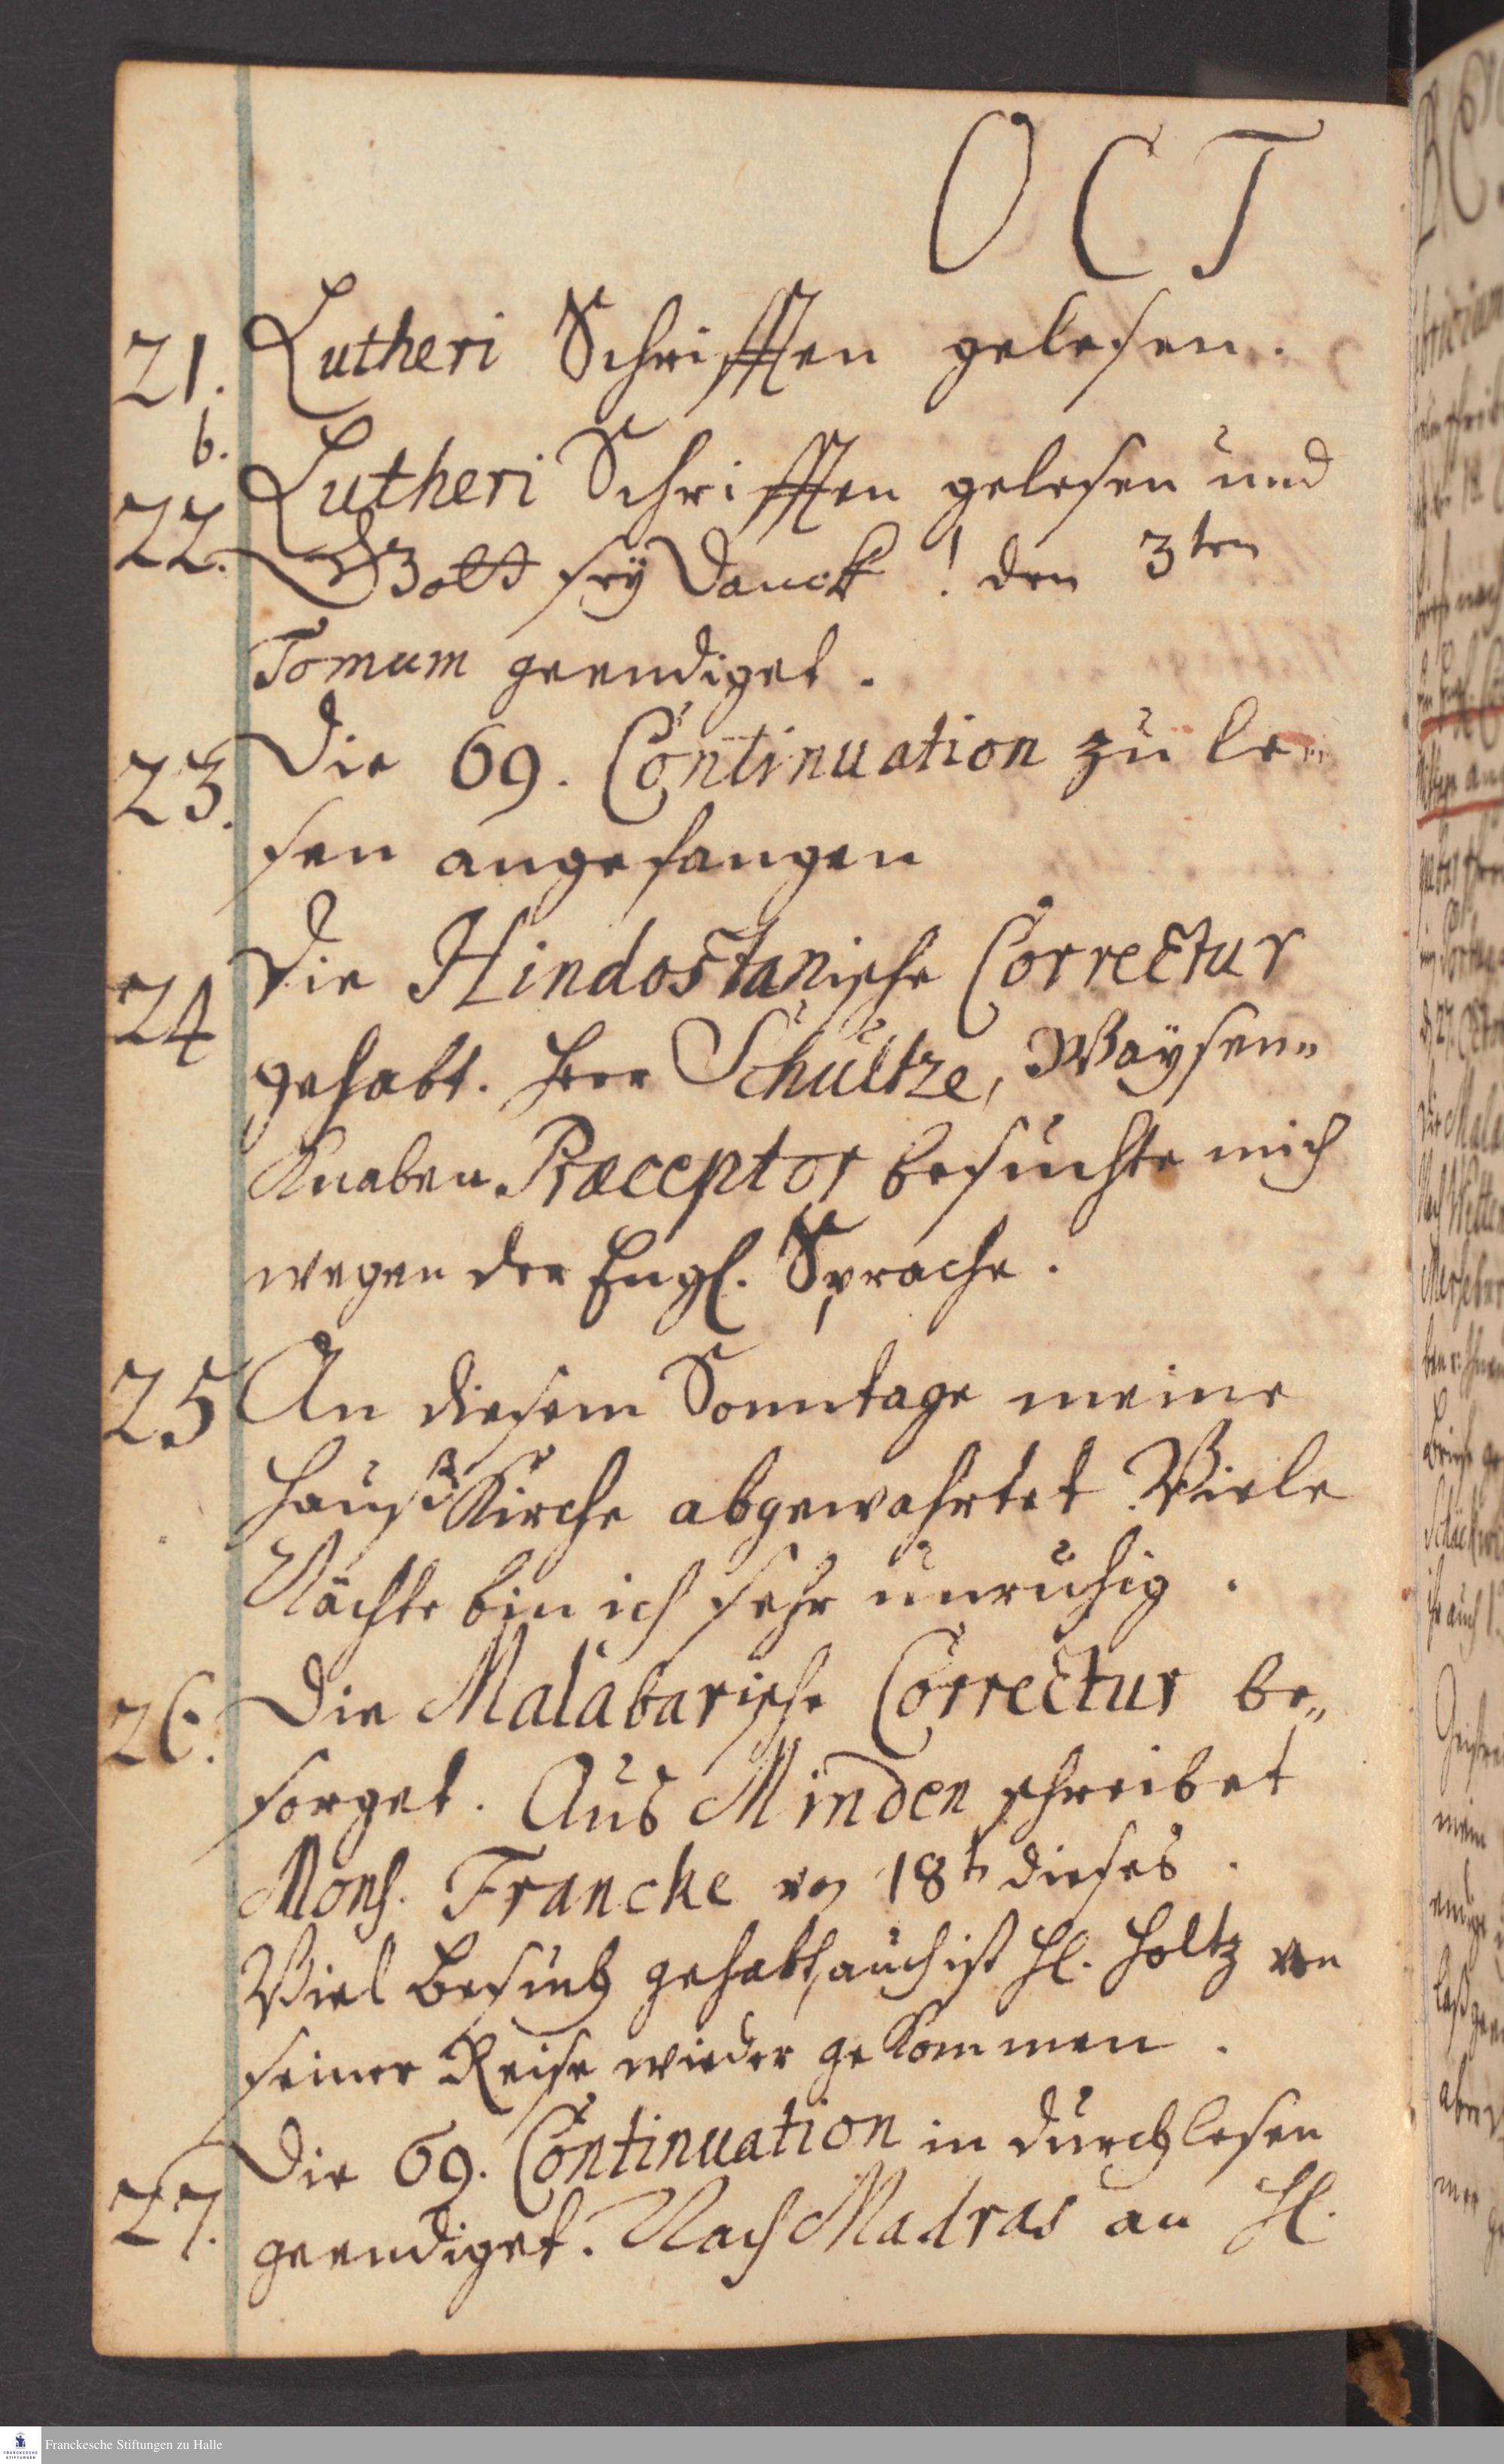 OCT
21. Lutheri Schrifften gelesen.
b.
22. Lutheri Schrifften gelesen und
Gott sey Danck! den 3ten
Tomum geendiget.
23. Die 69. Continuation zu le-
sen angefangen
24 Die Hindostanische Correctur
gehabt. Herr Schultze, Waysen-
Knaben Præceptor besuchte mich
wegen der Engl. Sprache.
25 An diesem Sonntage meine
Hauß Kirche abgewahrtet Viele
Nächte bin ich sehr unruhig.
26. Die Malabarische Correctur be-
sorget. Aus Minden schreibet
Mons. Francke vom 18t dieses.
Viel Besuch gehabt, auch ist H. Holtz von
seiner Reise wieder gekommen.
27. Die 69. Continuation in durchlesen
geendiget. Nach Madras an H.
Franckesche Stiftungen zu Halle